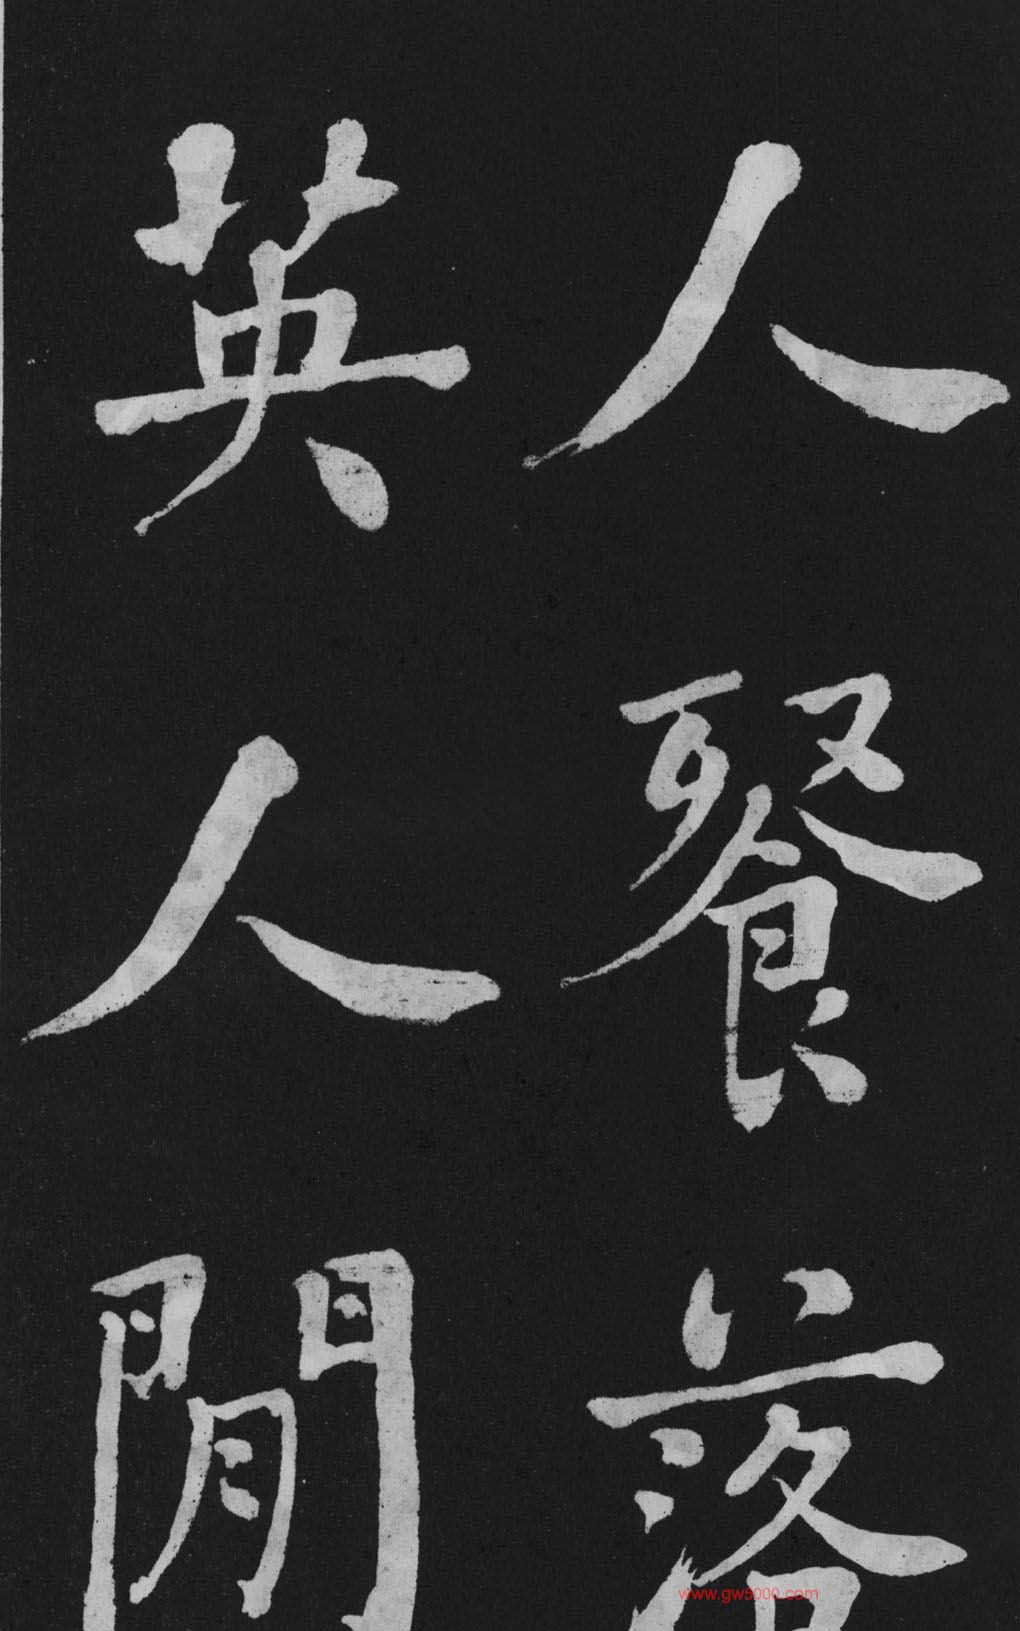 人餐落
英人閒
www.gw5000.com